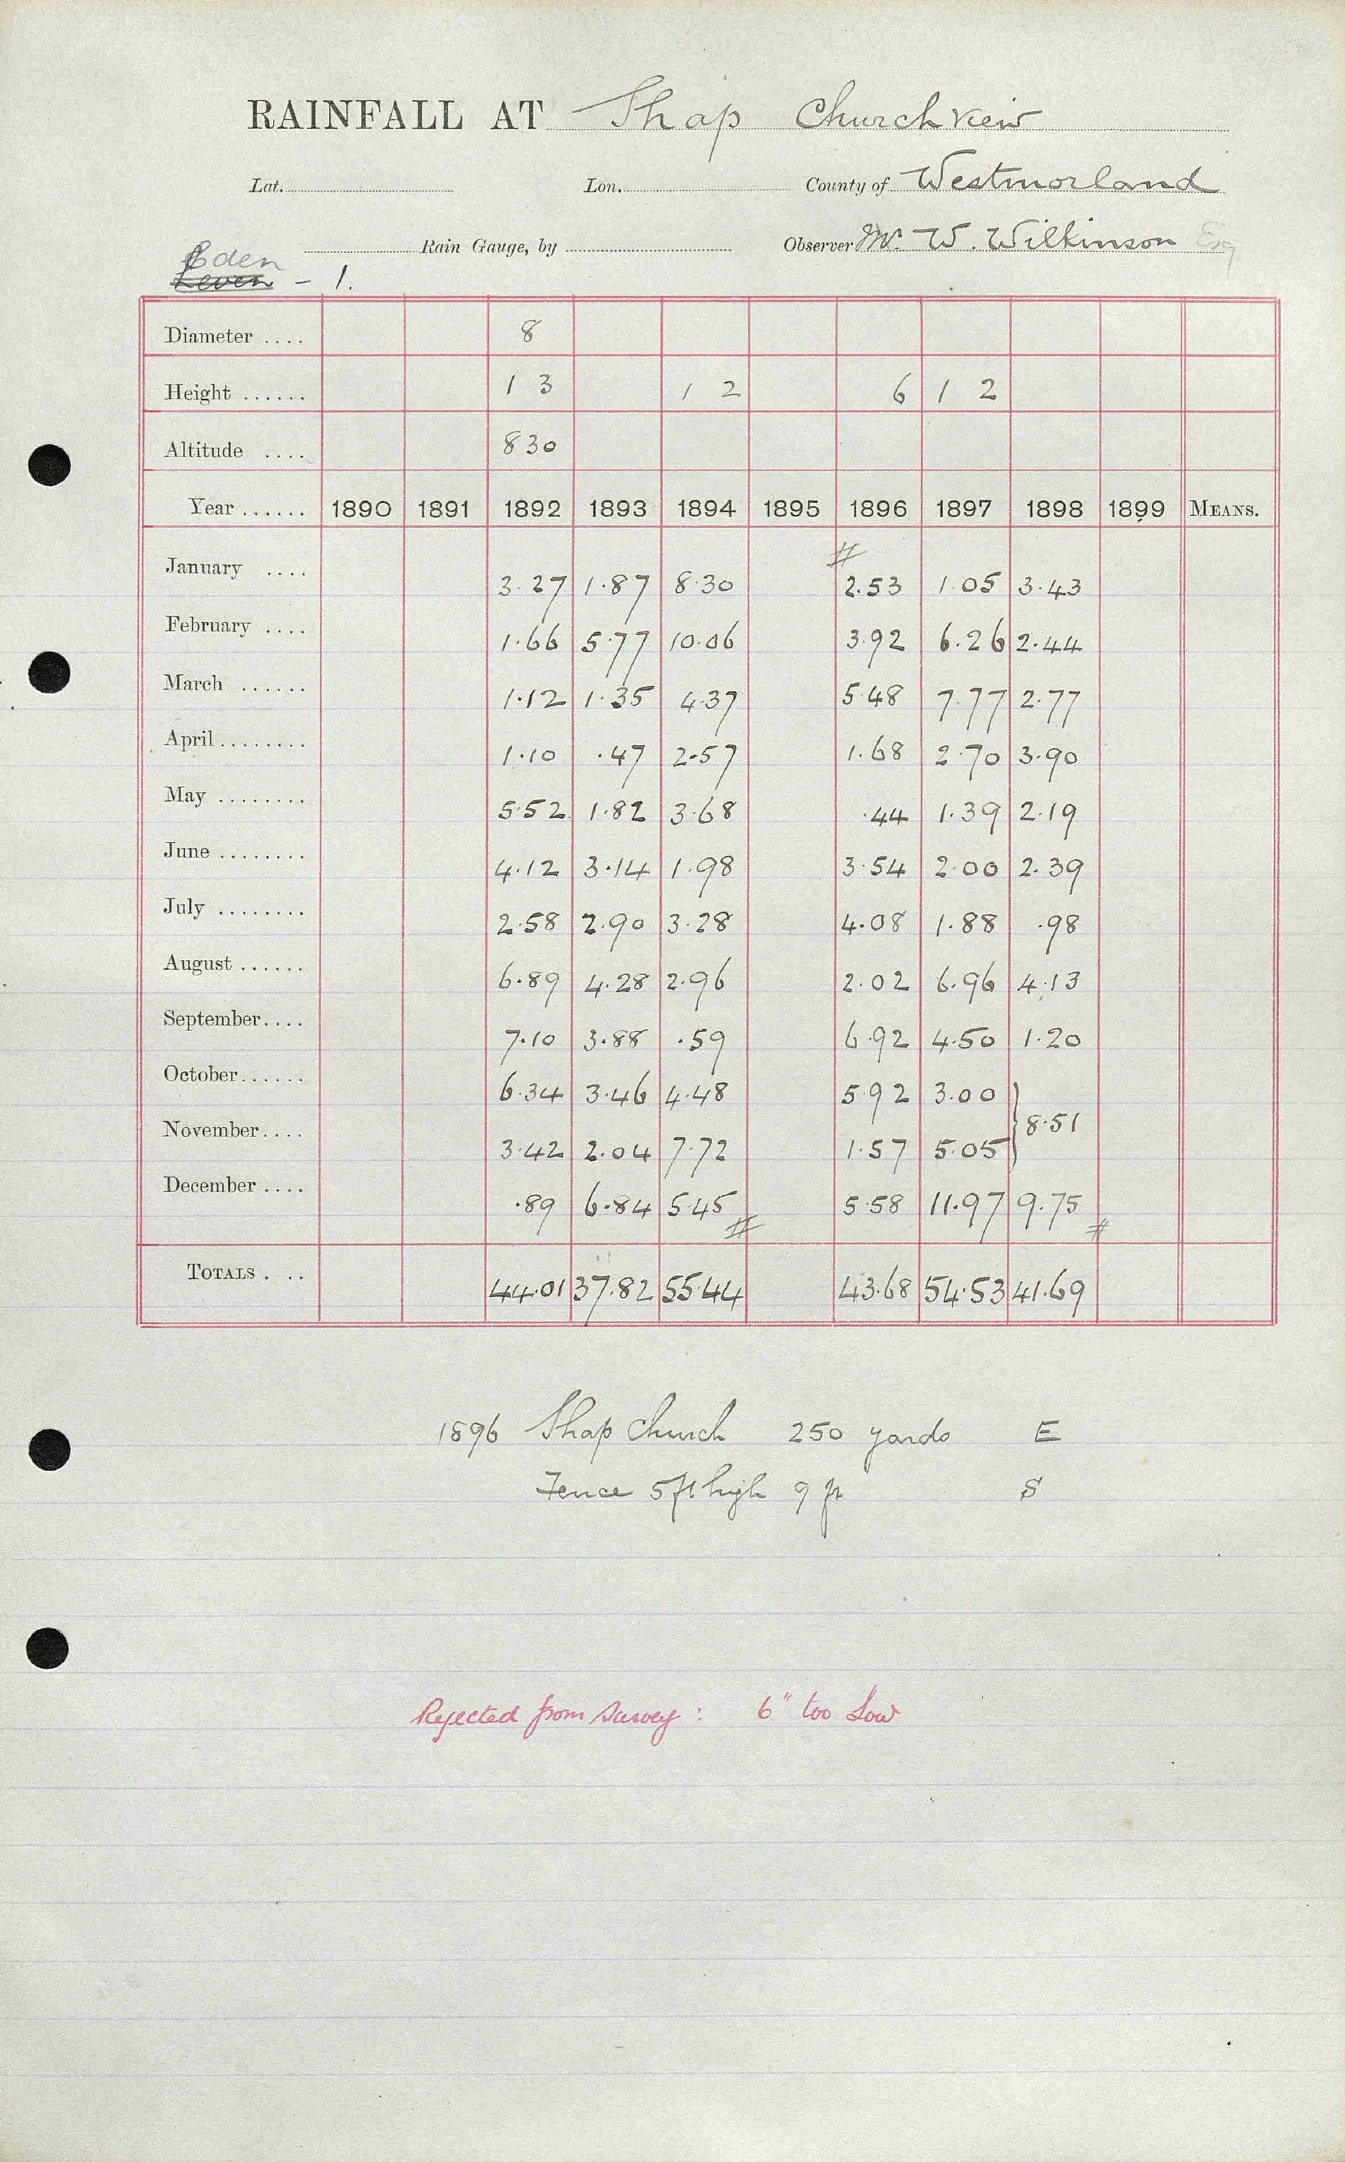 RAINFALL AT Shap Church View
Lat. Lon. County of Westmorland
Rain Gauge, by Observer Mr. W. Wilkinson Esq
Eden
Leven - 1.
Diameter .... 8
Height ...... 1 3 1 2 6 1 2
Altitude .... 830
Year ...... 1890 1891 1892 1893 1894 1895 1896 1897 1898 1899 MEANS.
#
January .... 3.27 1.87 8.30 2.53 1.05 3.43
February .... 1.66 5.77 10.06 3.92 6.26 2.44
March ...... 1.12 1.35 4.37 5.48 7.77 2.77
April ........ 1.10 .47 2.57 1.68 2.70 3.90
May ........ 5.52 1.82 3.68 .44 1.39 2.19
June ........ 4.12 3.14 1.98 3.54 2.00 2.39
July ........ 2.58 2.90 3.28 4.08 1.88 .98
August ...... 6.89 4.28 2.96 2.02 6.96 4.13
September.... 7.10 3.88 .59 6.92 4.50 1.20
October...... 6.34 3.46 4.48 5.92 3.00
November.... 3.42 2.04 7.72 1.57 5.05 } 8.51
December .... .89 6.84 5.45 5.58 11.97 9.75
# #
TOTALS . .. 44.01 37.82 55.44 43.68 54.53 41.69
1896 Shap Church 250 yards E
Fence 5ft high 9 ft S
Rejected from survey : 6" too low